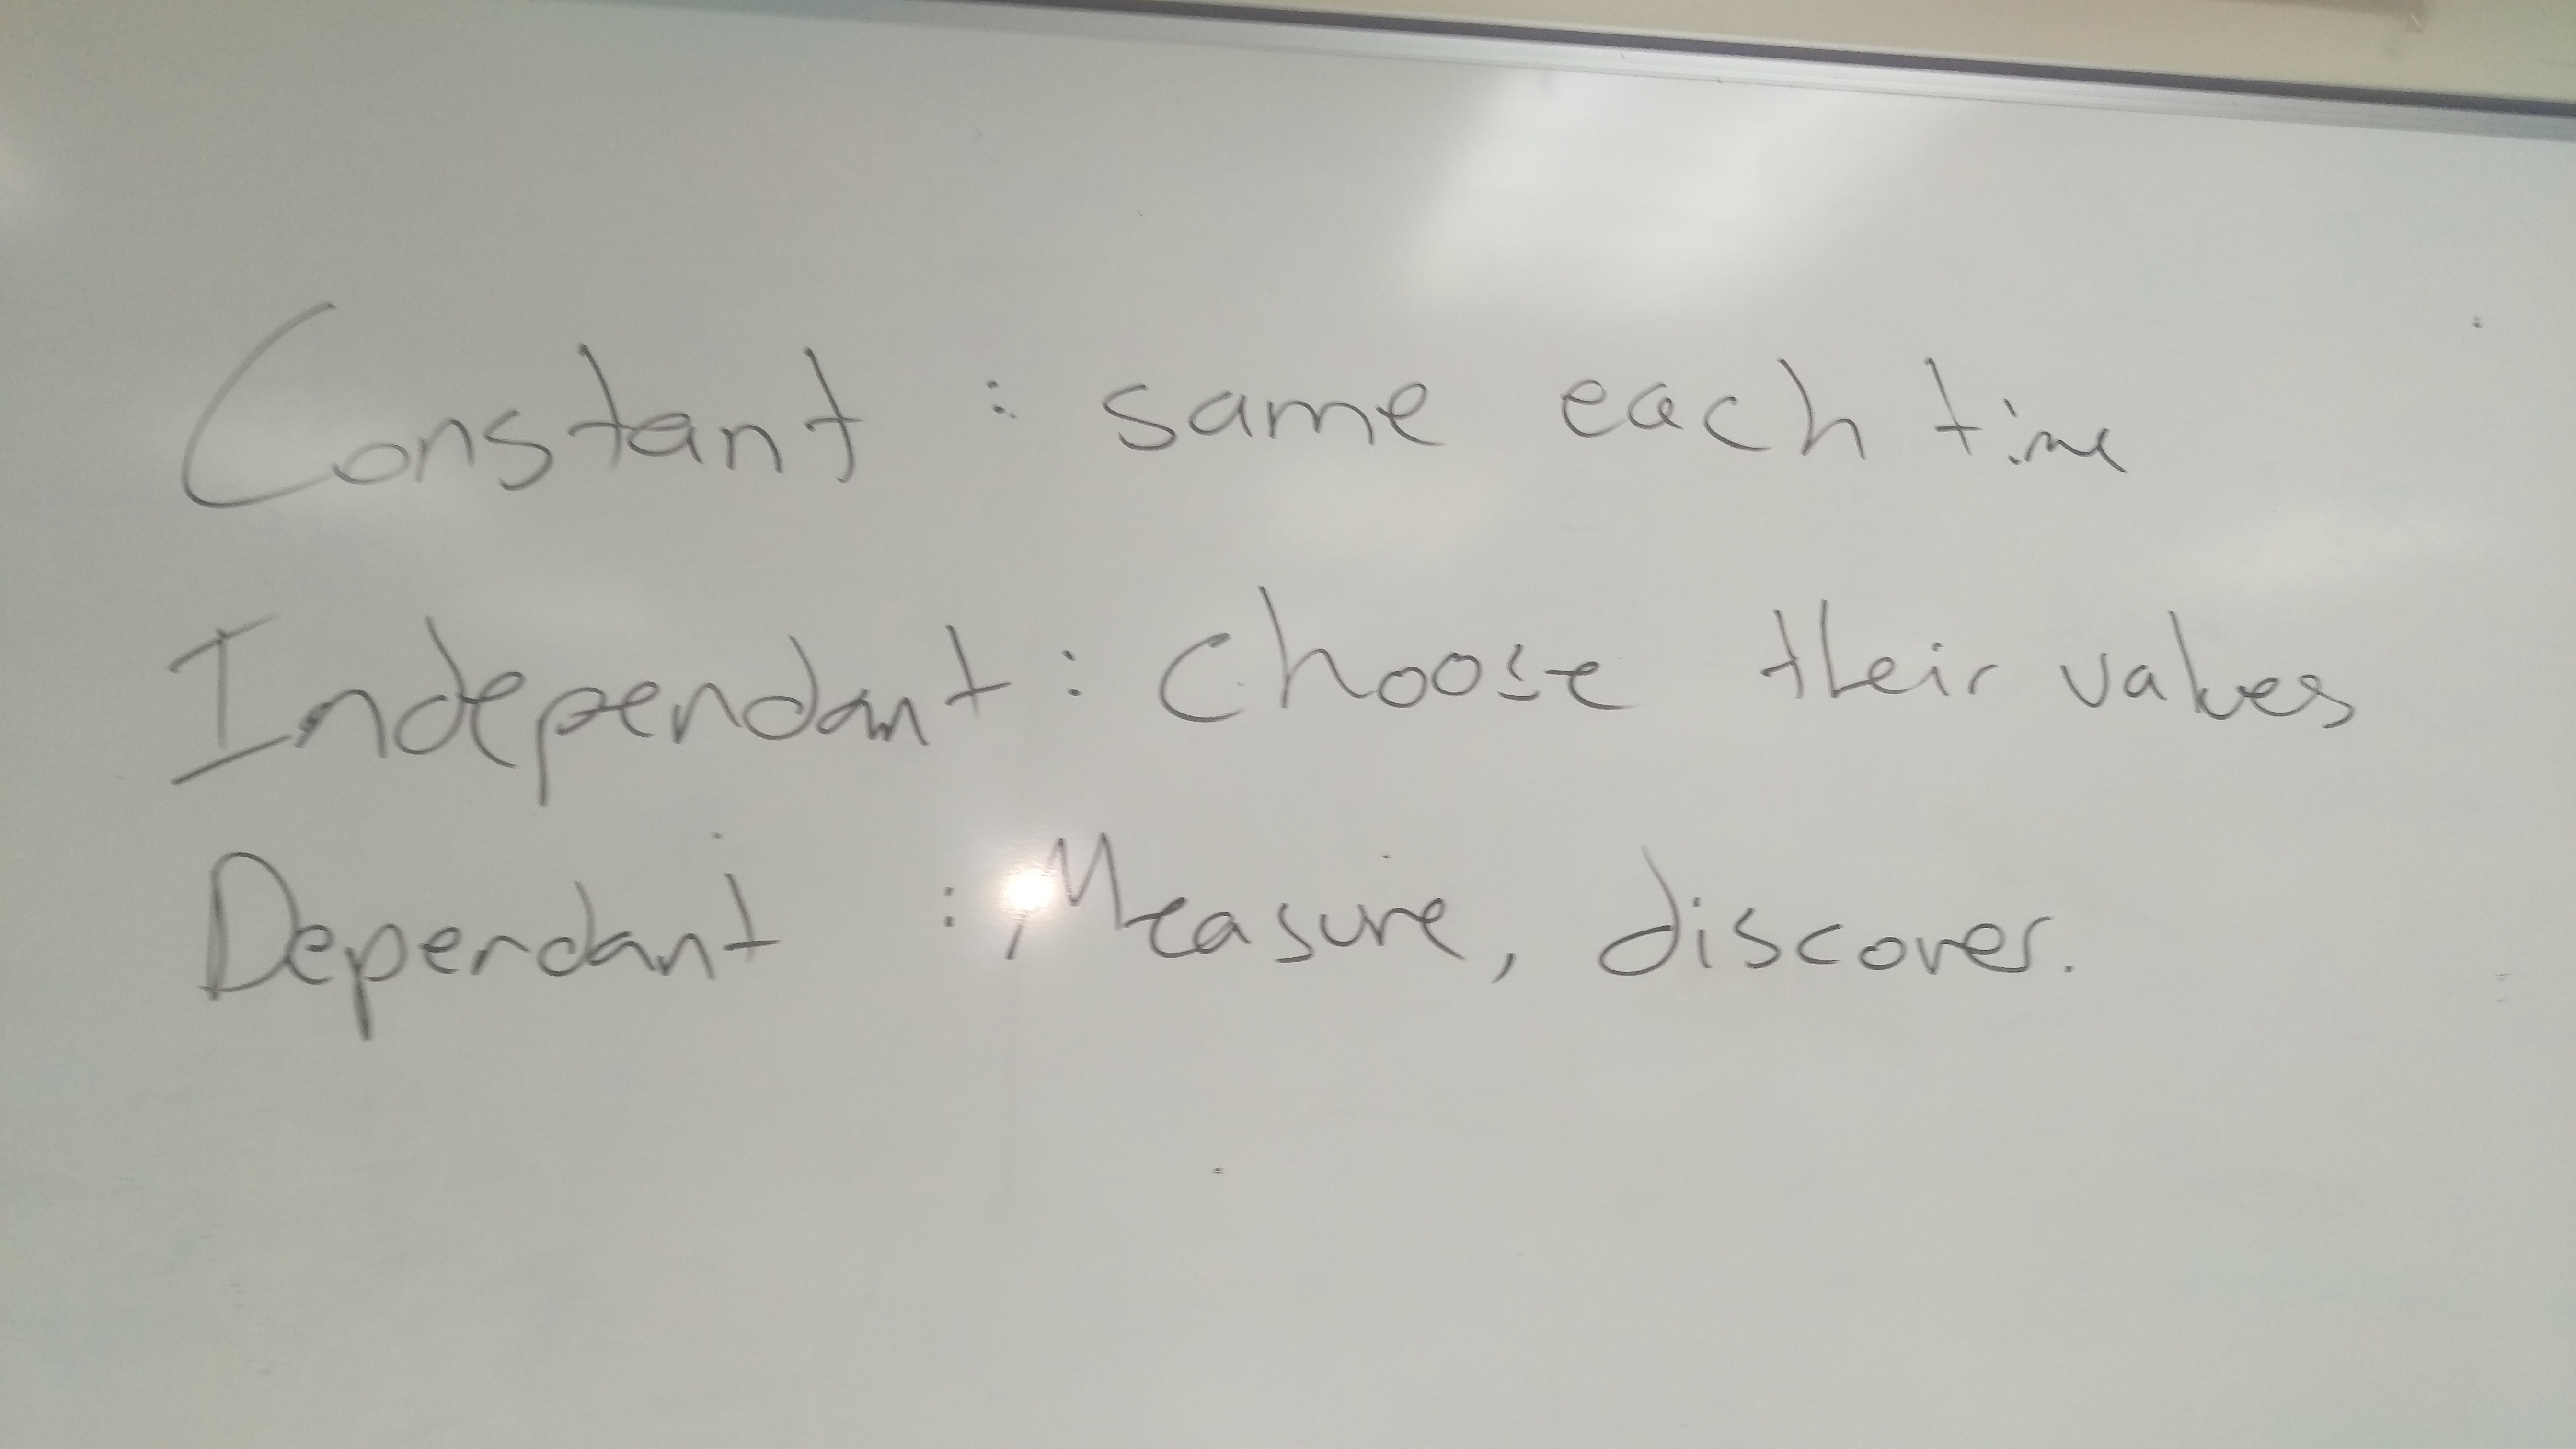 Constant : same each time
Independant : choose their values
Dependant : Measure, discover.